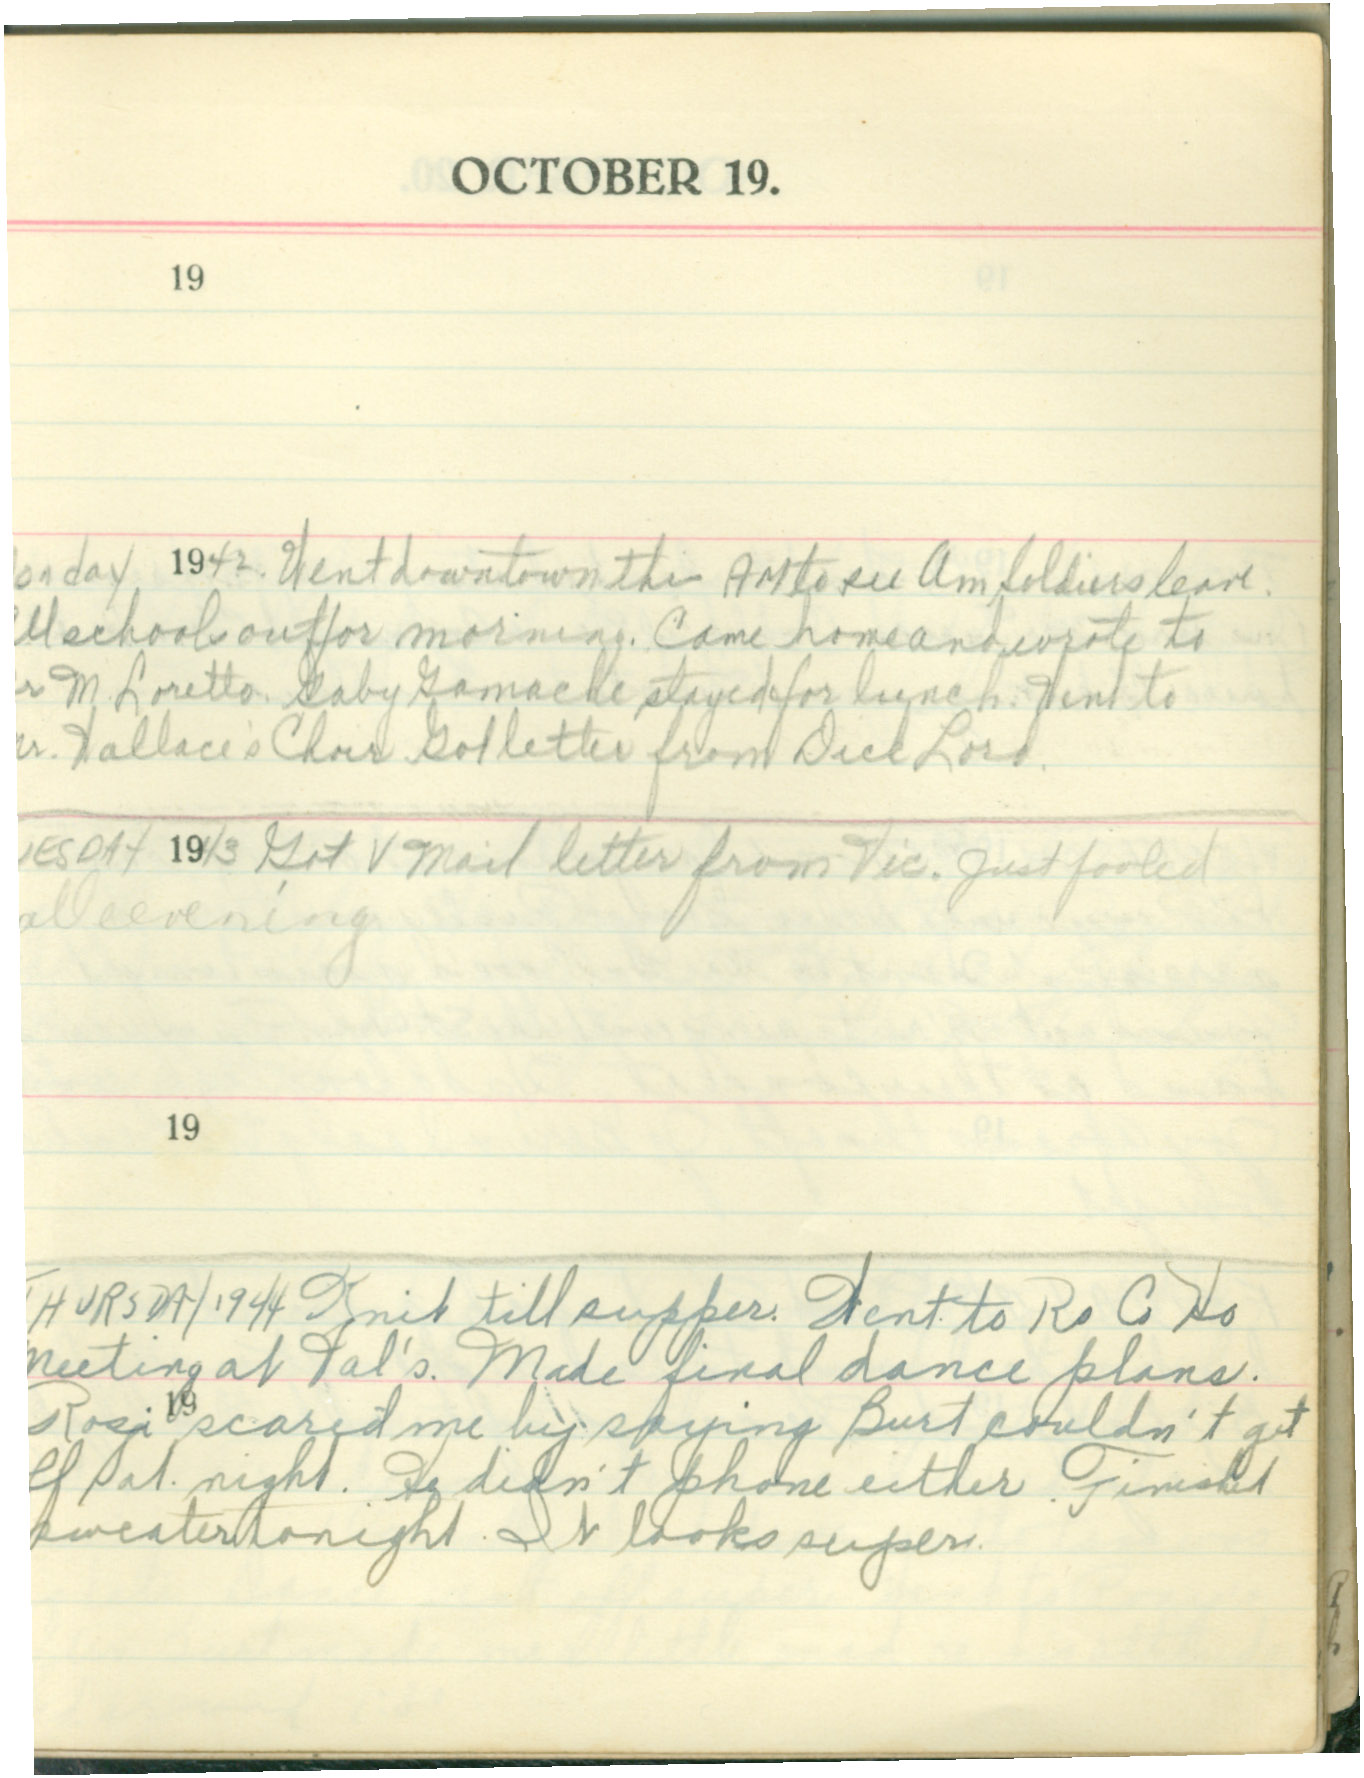 OCTOBER 19.
19
onday 1942. Went downtown this AM to see Am soldiers leave.
All schools out for morning. Came home and wrote to
r M. Loretto. Gaby Gamache stayed for lunch. Went to
r. Wallace's Choir Got letter from Dick Lord.
UESDAY 1943 Got V Mail letter from Vic. Just fooled
all evening
19
THURSDAY 1944 Knit till supper. Went to Ro Co Ho
Meeting at Val's. Made final dance plans.
19
Rosi scared me by saying Burt couldn't get
ff Sat. night. He didn't phone either. Finished
sweater tonight. It looks super.